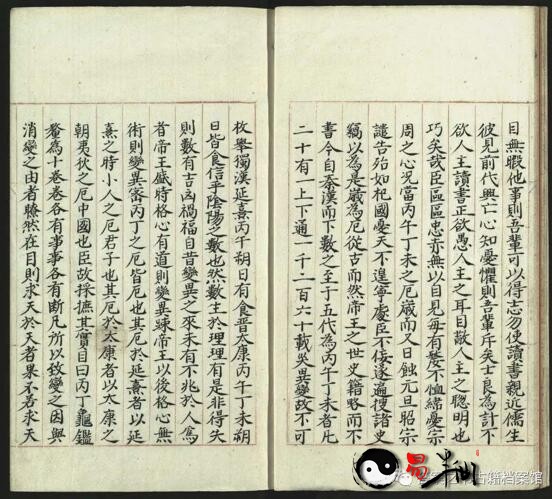 目無暇他事則吾輩可以得志勿使讀書親近儒生
彼見前代興亡心知憂懼則吾輩斥矣士良為計不
欲人主讀書正欲愚人主之耳目蔽人主之聰明也
巧矣哉臣區區忠赤無以自見每有嫠不恤緯憂宗
周之心況當丙午丁未之厄歲而又日蝕元旦昭示
譴告殆如杞國憂天不遑寧處臣不佞遂遍搜諸史
竊以為是歲為厄從古而然帝王之世史籍略而不
書今自秦漢而下數之至于五代為丙午丁未者凡
二十有一上下通一千二百六十載災異變故不可
枚舉獨漢延熹丙午朔日有食晉太康丙午丁未朔
日皆食信乎陰陽之數也然數主於理理有是非得失
則數有吉凶禍福自昔變異之來未有不兆於人為
者帝王盛時格心有道則變異疎帝王以後格心無
術則變異密丙丁之厄皆厄也其厄於延熹者以延
熹之時小人之厄君子也其厄於太康者以太康之
朝夷狄之厄中國也臣故採摭其實目曰丙丁龜鑑
釐為十卷卷各有事事各有斷凡所以致變之因與
消變之由者瞭然在目則求天於天者果不若求天
易
古籍档案馆